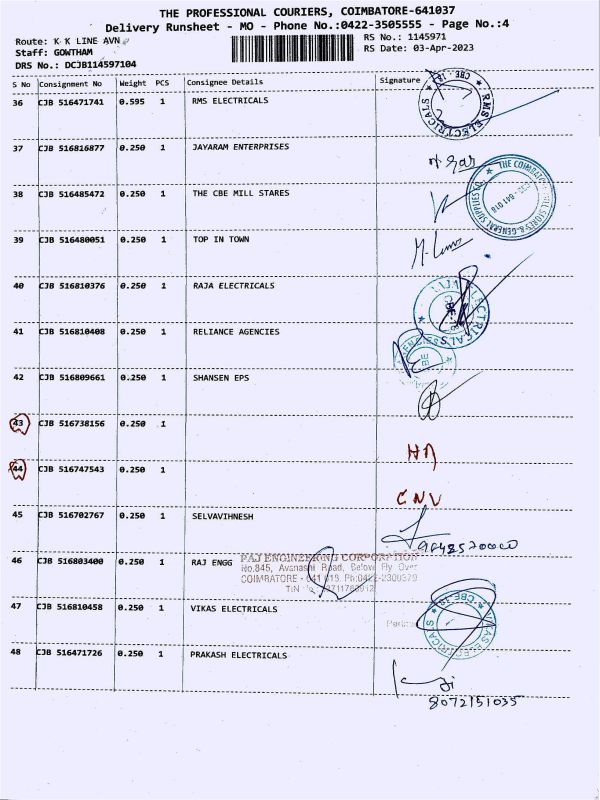 THE PROFESSIONAL COURIERS, COIMBATORE-641037
Delivery Runsheet - MO - Phone No.:0422-3505555 - Page No.:4
Route: K K LINE AVN
Staff: GOWTHAM
DRS No.: DCJB114597104
RS No.: 1145971
RS Date: 03-Apr-2023
S No Consignment No Weight PCS Consignee Details Signature
36 CJB 516471741 0.595 1 RMS ELECTRICALS
RMS ELECTRICALS CBE - 18
37 CJB 516816877 0.250 1 JAYARAM ENTERPRISES
38 CJB 516485472 0.250 1 THE CBE MILL STARES
39 CJB 516480051 0.250 1 TOP IN TOWN
40 CJB 516810376 0.250 1 RAJA ELECTRICALS
41 CJB 516810408 0.250 1 RELIANCE AGENCIES
42 CJB 516809661 0.250 1 SHANSEN EPS
43 CJB 516738156 0.250 1
44 CJB 516747543 0.250 1
CNV
45 CJB 516702767 0.250 1 SELVAVIHNESH
46 CJB 516803400 0.250 1 RAJ ENGG
RAJ ENGINEERING CORPORATION
No.845, Avanashi Road, Below Fly Over
COIMBATORE - 641 018. Ph:0422-2300379
47 CJB 516810458 0.250 1 VIKAS ELECTRICALS
VIKAS ELECTRICALS CBE-18
48 CJB 516471726 0.250 1 PRAKASH ELECTRICALS
8072151035